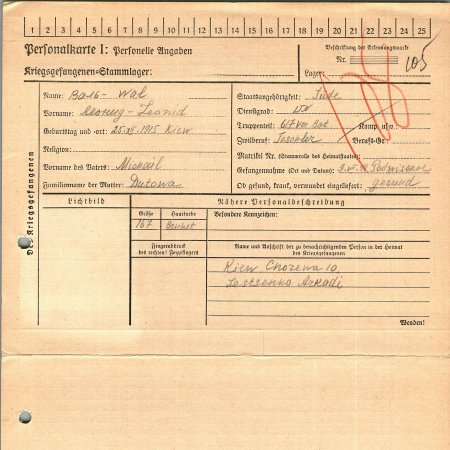 1 2 3 4 5 6 7 8 9 10 11 12 13 14 15 16 17 18 19 20 21 22 23 24 25
Personalkarte I: Personelle Angaben
Kriegsgefangenen-Stammlager:
Beschriftung der Erkennungsmarke
Nr. 105
Lager:
Des Kriegsgefangenen
Name: Вал - Wal
Vorname: Леонид - Leonid
Geburtstag und -ort: 25. 1915 Kiew
Religion:
Vorname des Vaters: Michail
Familienname der Mutter: Dutowa
Staatsangehörigkeit: Jude
Dienstgrad:
Truppenteil: 617 Bat. Komp. usw.
Zivilberuf: Berufs-Gr.
Matrikel Nr. (Stammrolle des Heimatstaates)
Gefangennahme (Ort und Datum):
Ob gesund, krank, verwundet eingeliefert: gesund
Lichtbild
Nähere Personalbeschreibung
Größe
Haarfarbe
Besondere Kennzeichen:
167
Fingerabdruck
des rechten Zeigefingers
Name und Anschrift der zu benachrichtigenden Person in der Heimat
des Kriegsgefangenen
Kiew Chorewa 10,
Arkadi
Wenden!